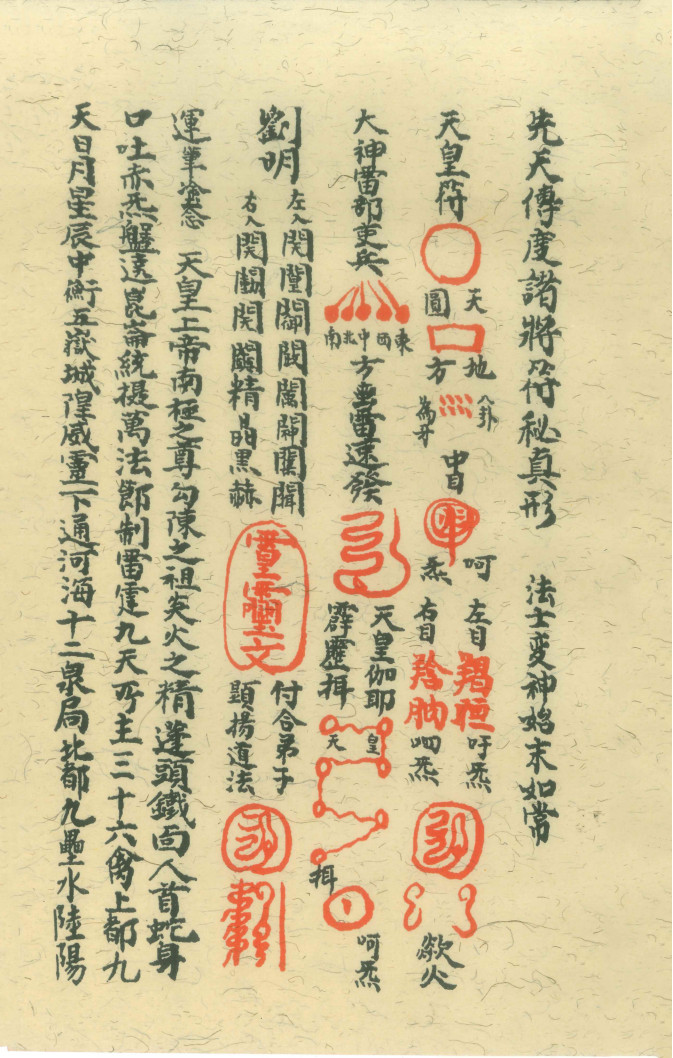 先天傳度諸將符秘真形　法士變神始末如常
天皇符
天圓
地方
八卦
呵炁
左目
吁炁
右目
呬炁
欻火
大神雷部吏兵
東西中北南
方蛮雷速發
天皇伽耶
霹靂揖
皇天
揖
呵炁
劉明
左入
右入
精晶黑赫
靈文
付合弟子
顕揚道法
運筆密念　天皇上帝南極之尊勾陳之祖炎火之精蓬頭鐵面人首蛇身
口吐赤炁盤遶崑崙統提萬法節制雷霆九天可主三十六禽上都九
天日月星辰中衡五嶽城隍威靈下通河海十二泉局北都九壘水陸陽